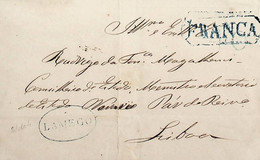 Illmo e Exmo
FRANCA
Rodrigo da Fonca Magalhaens
Conselheiro de Estado, Ministro e Secretario
de Estado Honorario Par do Reino
LAMEGO
Lisboa